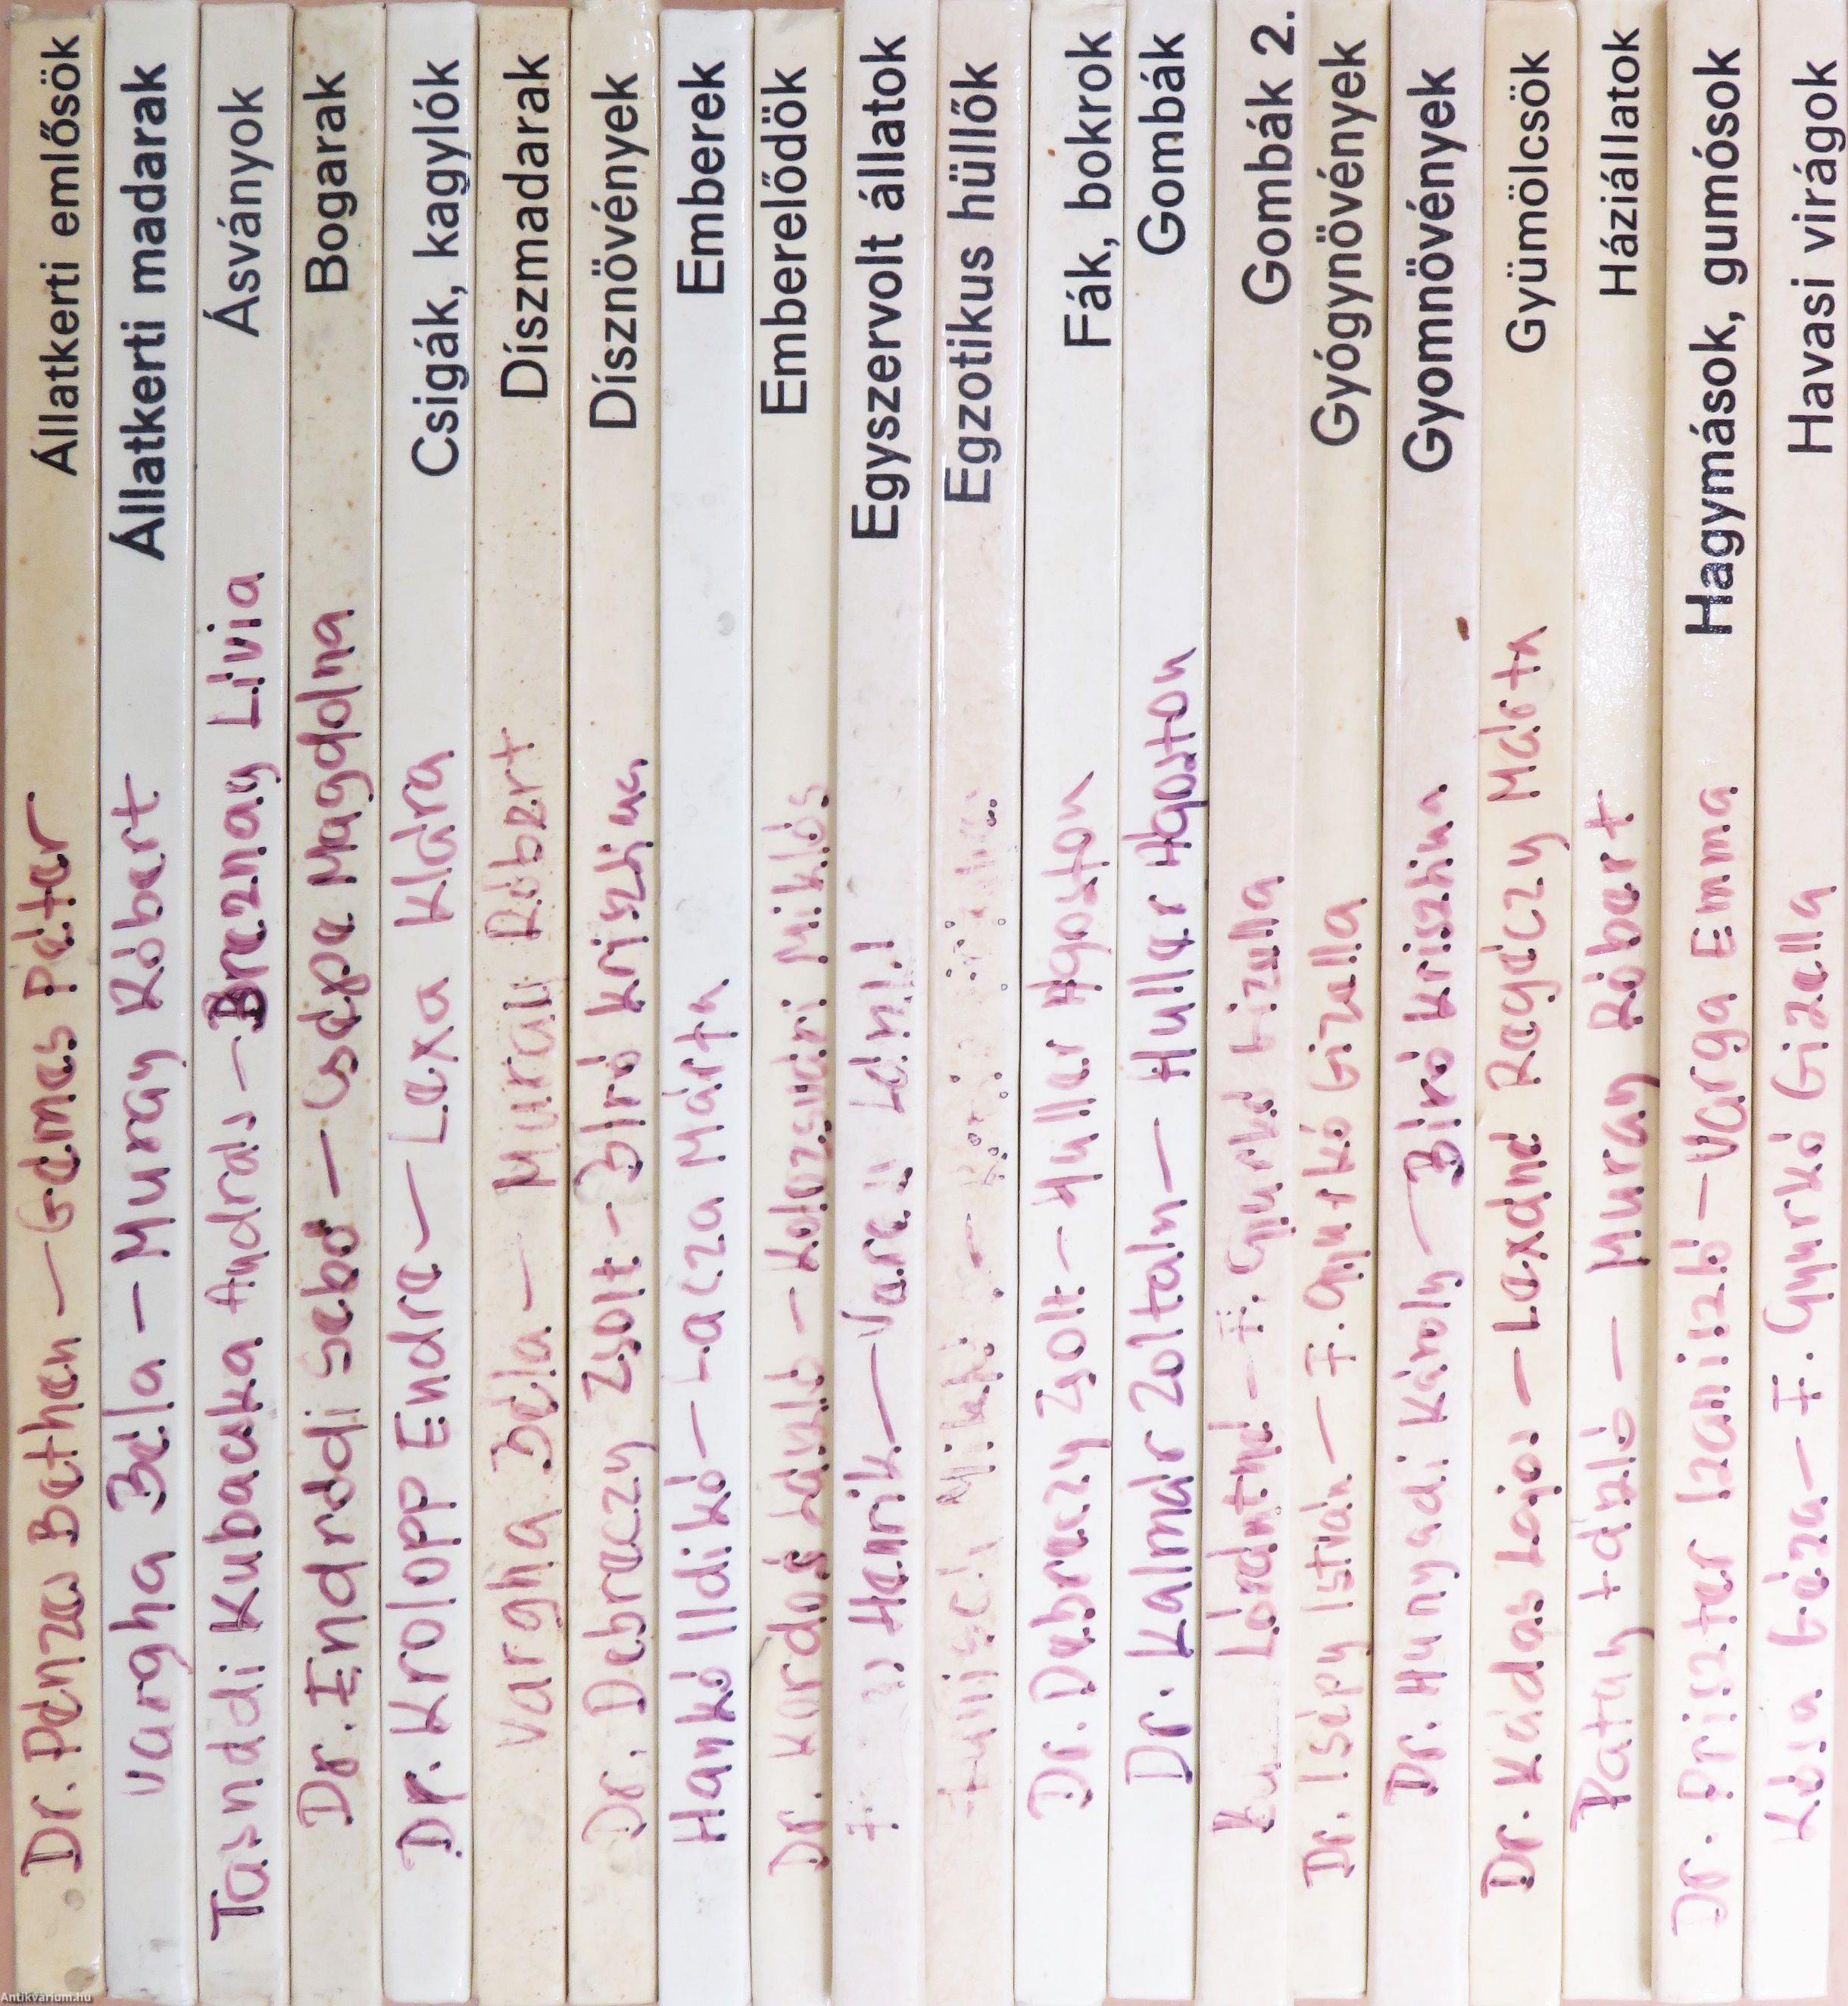 Dr. Pénzes Bethen – Gémes Péter Állatkerti emlősök
Vargha Béla – Muray Róbert Állatkerti madarak
Tasnádi Kubacska András – Breznay Lívia Ásványok
Dr. Endrődi Sebő – Csépe Magdolna Bogarak
Dr. Krolopp Endre – Lexa Klára Csigák, kagylók
Vargha Béla – Muray Róbert Díszmadarak
Dr. Debreczy Zsolt – Bíró Krisztina Dísznövények
Hankó Ildikó – Lacza Márta Emberek
Dr. Kordos László – Kolozsvári Miklós Emberelődök
Henrik – Egyszervolt állatok
Egzotikus hüllők
Dr. Debreczy Zsolt – Huller Ágoston Fák, bokrok
Dr. Kalmár Zoltán – Huller Ágoston Gombák
Lóránthné – F. Gyurkó Gizella Gombák 2.
Dr. Isépy István – F. Gyurkó Gizella Gyógynövények
Dr. Hunyadi Károly – Bíró Krisztina Gyomnövények
Dr. Kádas Lajos – Lexáné Regéczy Márta Gyümölcsök
Patay László – Muray Róbert Háziállatok
Dr. Priszter Szaniszló – Varga Emma Hagymások, gumósok
Kósa Géza – F. Gyurkó Gizella Havasi virágok
Antikvárium.hu